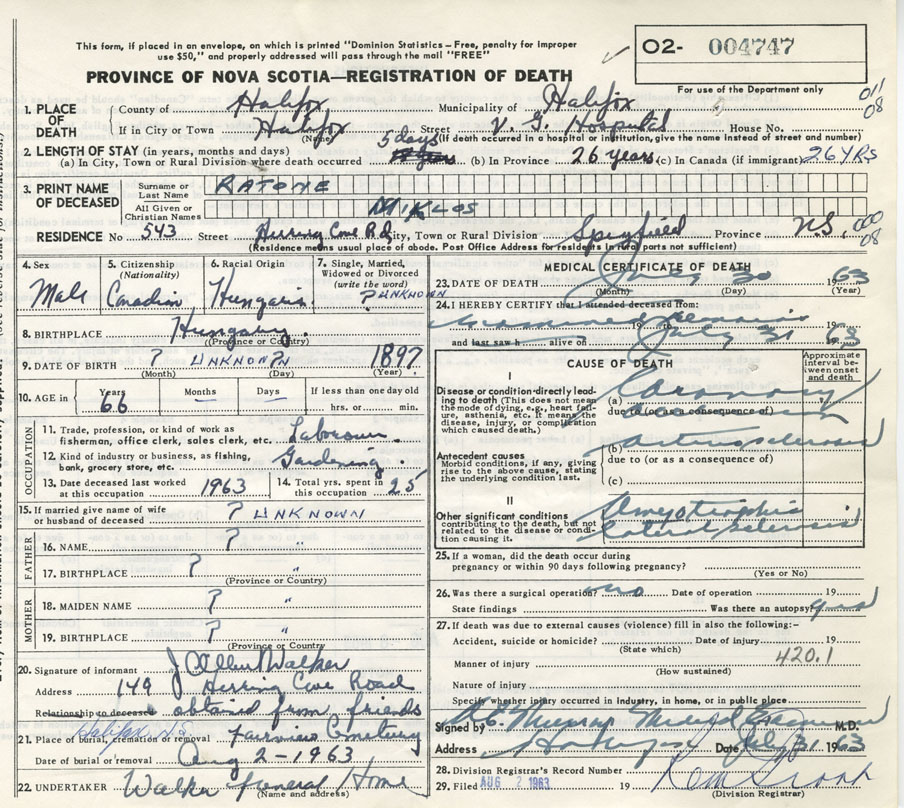 This form, if placed in an envelope, on which is printed "Dominion Statistics – Free, penalty for improper
use $50," and properly addressed will pass through the mail "FREE"
O2- 004747
PROVINCE OF NOVA SCOTIA—REGISTRATION OF DEATH
For use of the Department only
011
08
1. PLACE OF DEATH
County of Halifax Municipality of Halifax
If in City or Town Halifax Street V. G. Hospital House No.
(Name) (If death occurred in a hospital or institution, give the name instead of street and number)
2. LENGTH OF STAY (in years, months and days) 5 days
(a) In City, Town or Rural Division where death occurred (b) In Province 26 years (c) In Canada (if immigrant) 26 YRS
3. PRINT NAME OF DECEASED
Surname or Last Name RATONE
All Given or Christian Names MIKLOS
RESIDENCE No 543 Street Herring Cove Rd City, Town or Rural Division Spryfield Province N.S. 000
08
(Residence means usual place of abode. Post Office Address for residents in rural parts not sufficient)
4. Sex Male
5. Citizenship (Nationality) Canadian
6. Racial Origin
7. Single, Married, Widowed or Divorced (write the word) ? UNKNOWN
8. BIRTHPLACE Hungary
(Province or Country)
9. DATE OF BIRTH ? UNKNOWN 1897
(Month) (Day) (Year)
10. AGE in Years 66 Months – Days – If less than one day old
hrs. or min.
OCCUPATION
11. Trade, profession, or kind of work as
fisherman, office clerk, sales clerk, etc. Labourer
12. Kind of industry or business, as fishing,
bank, grocery store, etc. Gardening
13. Date deceased last worked
at this occupation 1963
14. Total yrs. spent in
this occupation 25
15. If married give name of wife
or husband of deceased ? UNKNOWN
FATHER
16. NAME ? "
17. BIRTHPLACE ? "
(Province or Country)
MOTHER
18. MAIDEN NAME ? "
19. BIRTHPLACE ? "
(Province or Country)
20. Signature of informant J Albert Walker
Address 149 Herring Cove Road
Relationship to deceased obtained from friends
Halifax N.S.
21. Place of burial, cremation or removal Fairview Cemetery
Date of burial or removal Aug 2 - 1963
22. UNDERTAKER Walker Funeral Home
(Name and address)
MEDICAL CERTIFICATE OF DEATH
23. DATE OF DEATH July 30 1963
(Month) (Day) (Year)
24. I HEREBY CERTIFY that I attended deceased from:
19 to
and last saw h alive on July 31 19 63
CAUSE OF DEATH
Approximate interval between onset and death
I
Disease or condition directly leading
to death (This does not mean
the mode of dying, e.g., heart failure,
asthenia, etc. It means the
disease, injury, or complication
which caused death.)
(a) Coronary
due to (or as a consequence of)
Antecedent causes
Morbid conditions, if any, giving
rise to the above cause, stating
the underlying condition last.
(b) arteriosclerosis
due to (or as a consequence of)
(c)
II
Other significant conditions
contributing to the death, but not
related to the disease or condition
causing it.
Amyotrophic
lateral sclerosis
25. If a woman, did the death occur during
pregnancy or within 90 days following pregnancy?
(Yes or No)
26. Was there a surgical operation? no Date of operation 19
State findings Was there an autopsy? yes
27. If death was due to external causes (violence) fill in also the following:-
Accident, suicide or homicide? Date of injury 19
(State which)
420.1
Manner of injury
(How sustained)
Nature of injury
Specify whether injury occurred in industry, in home, or in public place
Signed by Murray M.D.
Address Date July 31 1963
28. Division Registrar's Record Number
29. Filed AUG 2 1963 19
(Division Registrar)